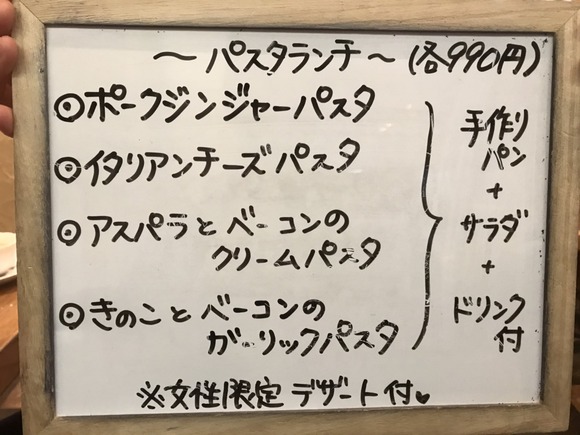 ～パスタランチ～(各990円)
◉ポークジンジャーパスタ
◉イタリアンチーズパスタ
◉アスパラとベーコンの
クリームパスタ
◉きのことベーコンの
ガーリックパスタ
手作り
パン
+
サラダ
+
ドリンク
付
※女性限定デザート付♥